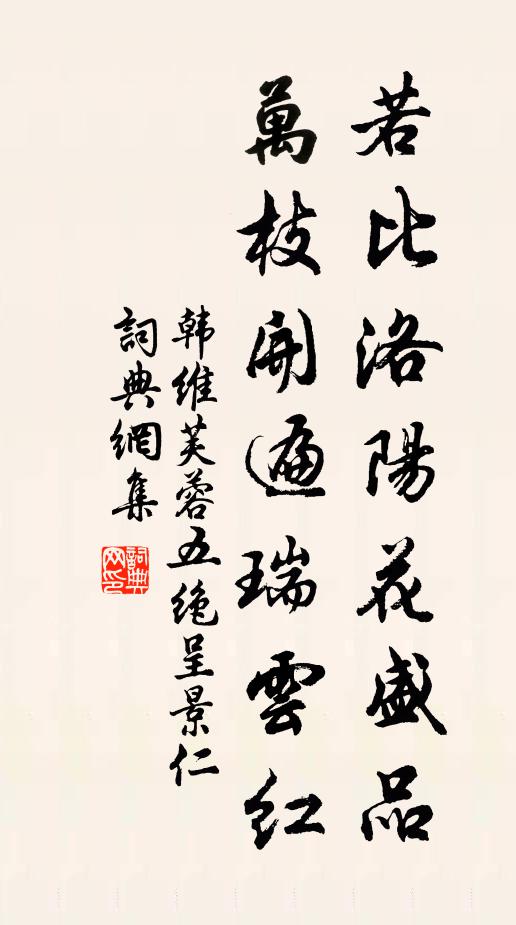 若比洛陽花盛品
萬枝開遍瑞雲紅
韩維芙蓉五绝呈景仁
詞典網集
詞典网印